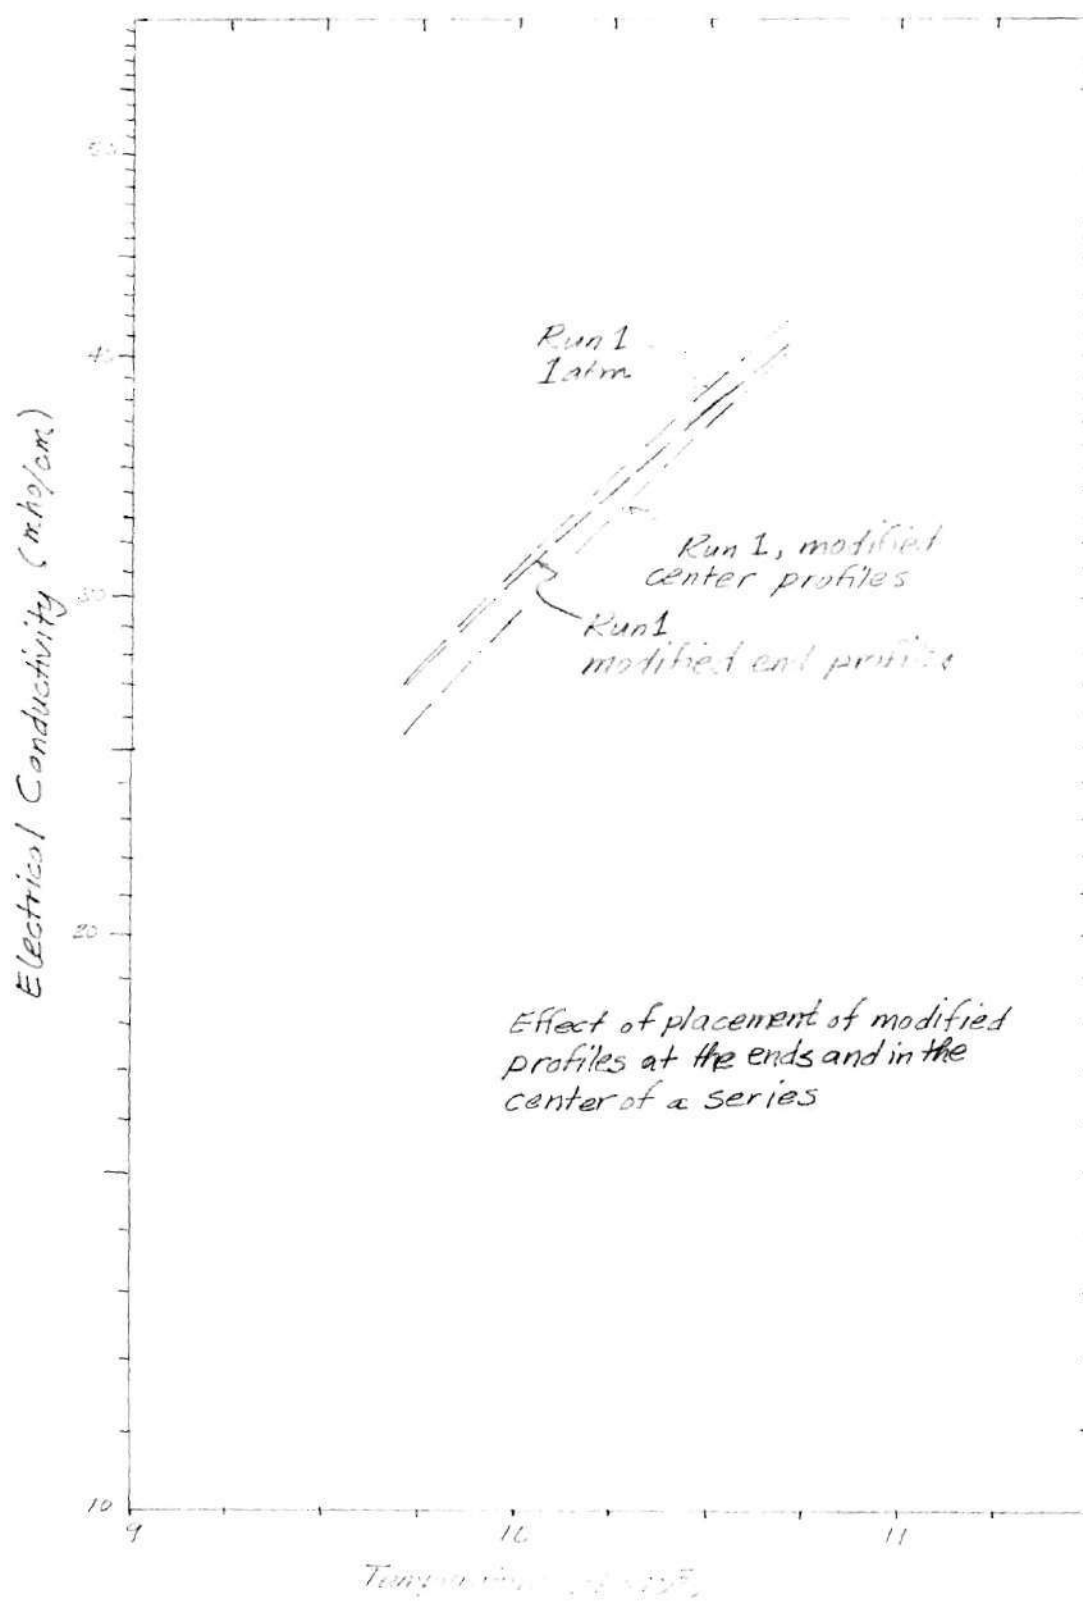 50
40
30
20
10
9
10
11
Electrical Conductivity (mho/cm)
Run 1
1 atm
Run 1, modified
center profiles
Run 1
modified end profiles
Effect of placement of modified
profiles at the ends and in the
center of a series